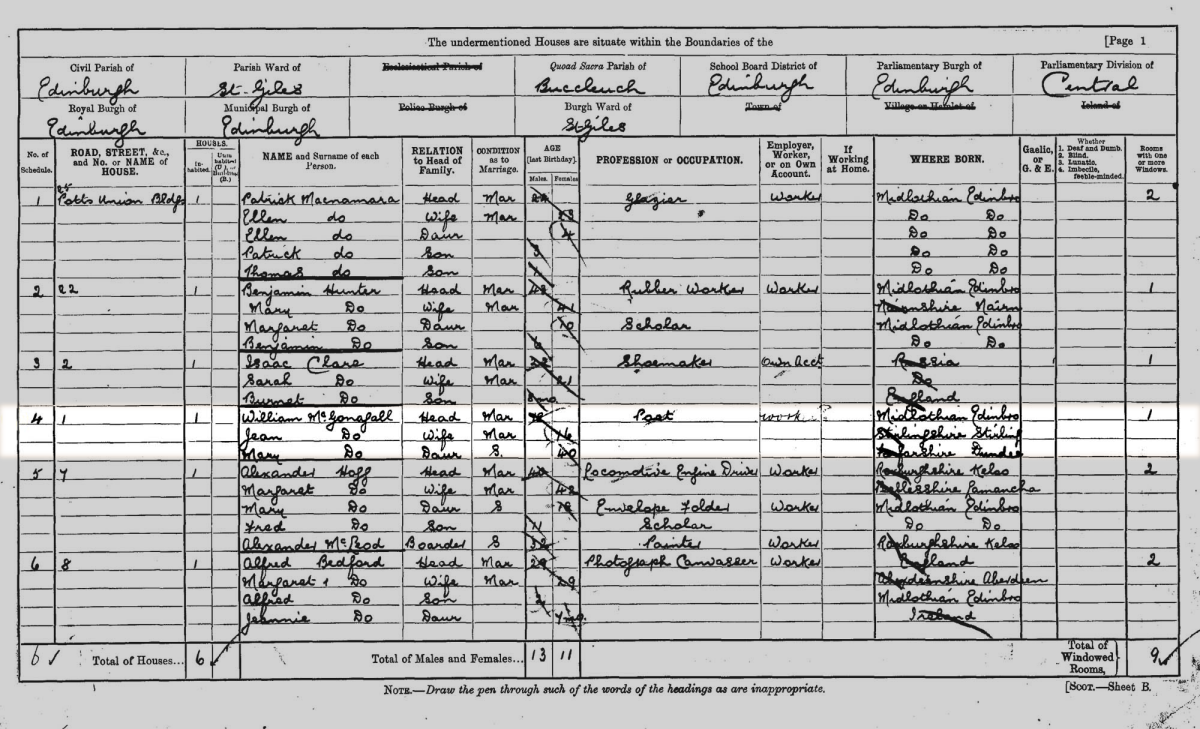 The undermentioned Houses are situate within the Boundaries of the [Page 1
Civil Parish of Parish Ward of Ecclesiastical Parish of Quoad Sacra Parish of School Board District of Parliamentary Burgh of Parliamentary Division of
Edinburgh St. Giles Buccleuch Edinburgh Edinburgh Central
Royal Burgh of Municipal Burgh of Police Burgh of Burgh Ward of Town of Village or Hamlet of Island of
Edinburgh Edinburgh St Giles
No. of Schedule. ROAD, STREET, &c., and No. or NAME of HOUSE. HOUSES. Inhabited. NAME and Surname of each Person. RELATION to Head of Family. CONDITION as to Marriage. AGE [last Birthday]. Males. Females. PROFESSION or OCCUPATION. Employer, Worker, or on Own Account. If Working at Home. WHERE BORN. Gaelic, or G. & E. Whether 1. Deaf and Dumb. 2. Blind. 3. Lunatic. 4. Imbecile, feeble-minded. Rooms with One or more Windows.
25
1 Potts Union Bldgs 1 Patrick Macnamara Head Mar Glazier Worker Midlothian Edinbro 2
Ellen do Wife Mar Do Do
Ellen do Daur 4 Do Do
Patrick do Son 3 Do Do
Thomas do Son 1 Do Do
2 22 1 Benjamin Hunter Head Mar 42 Rubber Worker Worker Midlothian Edinbro 1
Mary Do Wife Mar 41 Nairnshire Nairn
Margaret Do Daur 10 Scholar Midlothian Edinbro
Benjamin Do Son 6 Do Do
3 2 1 Isaac Clare Head Mar Shoemaker Own Acct Russia 1
Sarah Do Wife Mar 21 Do
Burnet Do Son 8 mo England
4 1 1 William McGonagall Head Mar Poet work Midlothian Edinbro 1
Jean Do Wife Mar Stirlingshire Stirling
Mary Do Daur S. 40 Forfarshire Dundee
5 7 1 Alexander Hogg Head Mar 40 Locomotive Engine Driver Worker Roxburghshire Kelso 2
Margaret Do Wife Mar 42 Peeblesshire Lamancha
Mary Do Daur S 18 Envelope Folder Worker Midlothian Edinbro
Fred Do Son 11 Scholar Do Do
Alexander McLeod Boarder S 32 Painter Worker Roxburghshire Kelso
6 8 1 Alfred Bedford Head Mar 29 Photograph Canvasser Worker England 2
Margaret Do Wife Mar 29 Aberdeenshire Aberdeen
Alfred Do Son 2 Midlothian Edinbro
Jeannie Do Daur 7 mo. Ireland
6 Total of Houses... 6 Total of Males and Females... 13 11 Total of Windowed Rooms, 9
NOTE.—Draw the pen through such of the words of the headings as are inappropriate. [SCOT.—Sheet B.